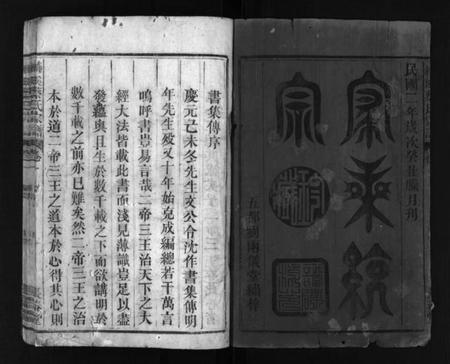 民國二年歲次癸丑臘月刊
家乘統宗
書集傳序
慶元己未冬先生文公令沈作書集傳明
年先生歿又十年始克成編總若干萬言
嗚呼書豈易言哉二帝三王治天下之大
經大法皆載此書而淺見薄識豈足以盡
發蘊奧且生於數千載之下而欲講明於
數千載之前亦已難矣然二帝三王之治
本於道二帝三王之道本於心得其心則